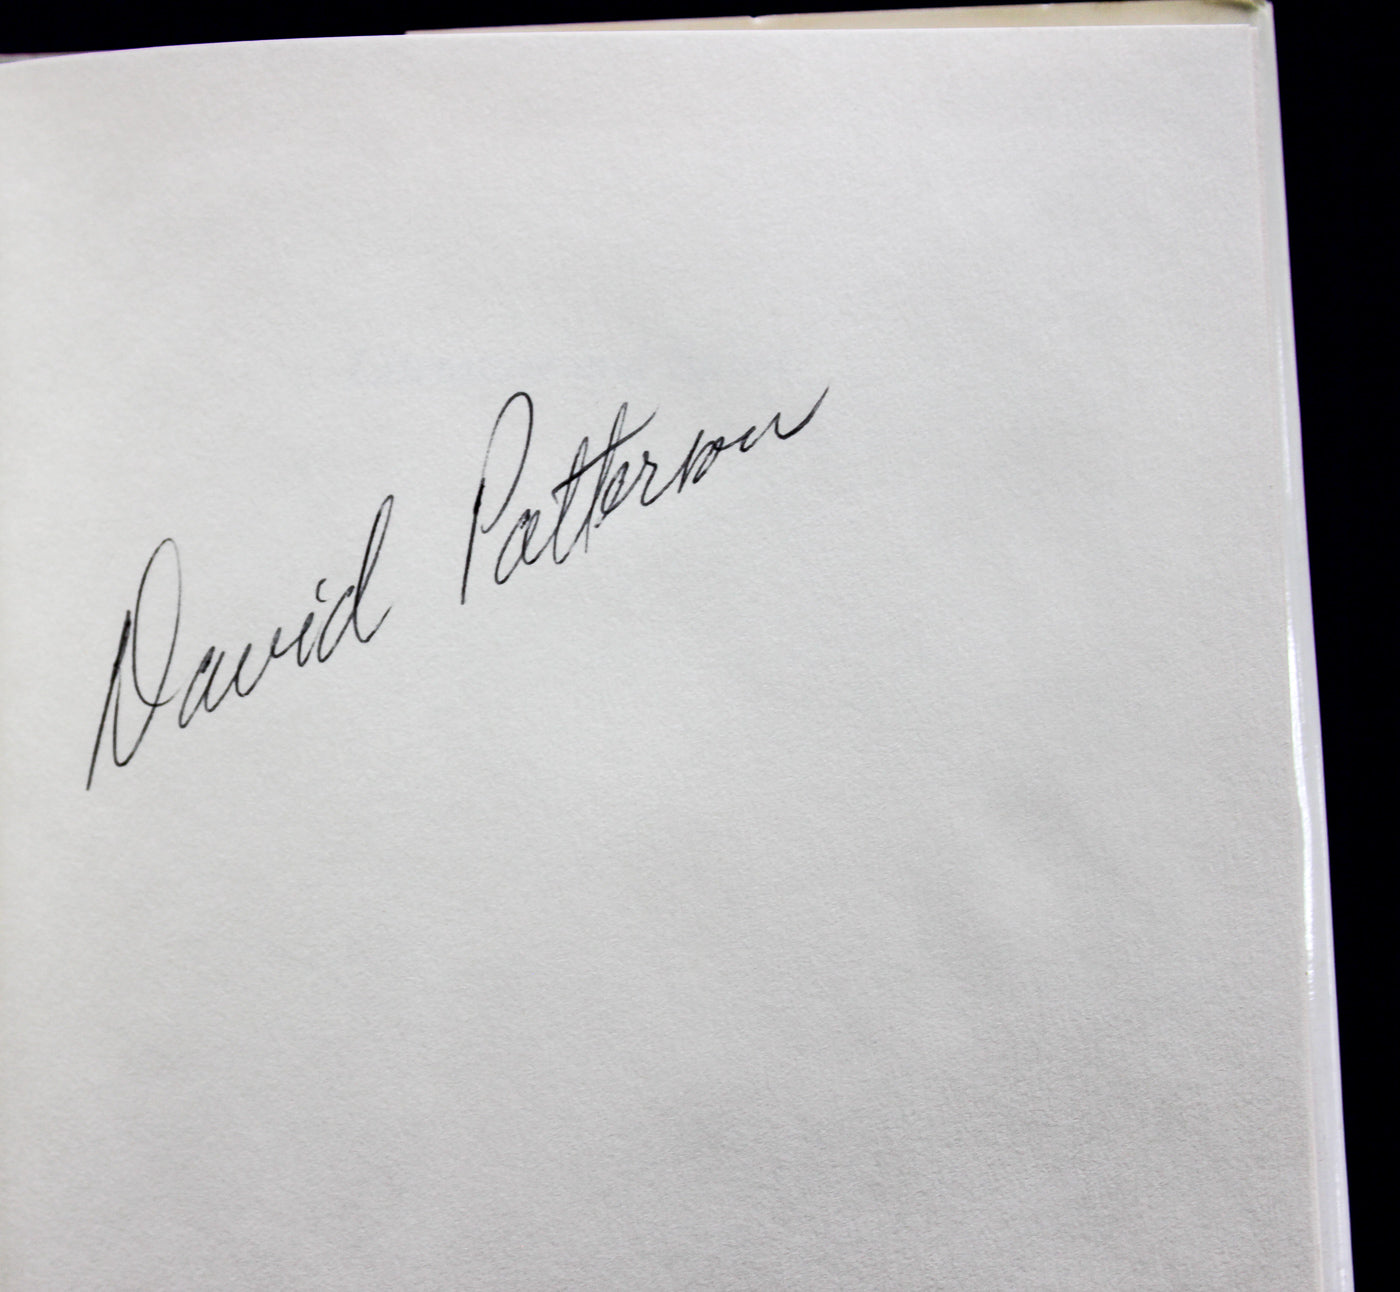 David Patterson